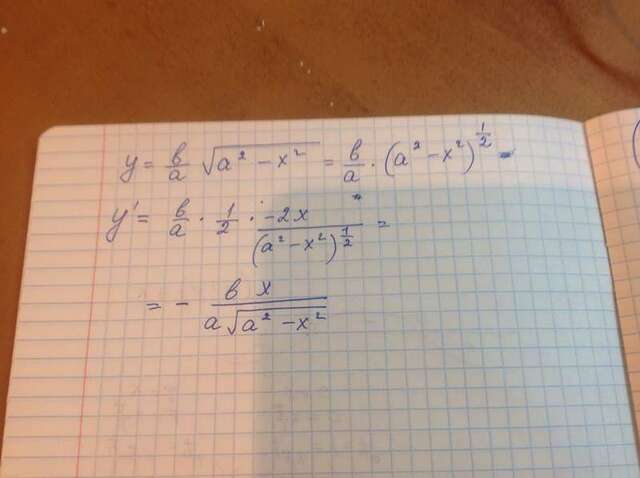 y = в/a √(a² - x²) = в/a · (a² - x²)^(1/2) -
y' = в/a · 1/2 · (-2x)/((a² - x²)^(1/2)) =
= - (в x)/(a√(a² - x²))